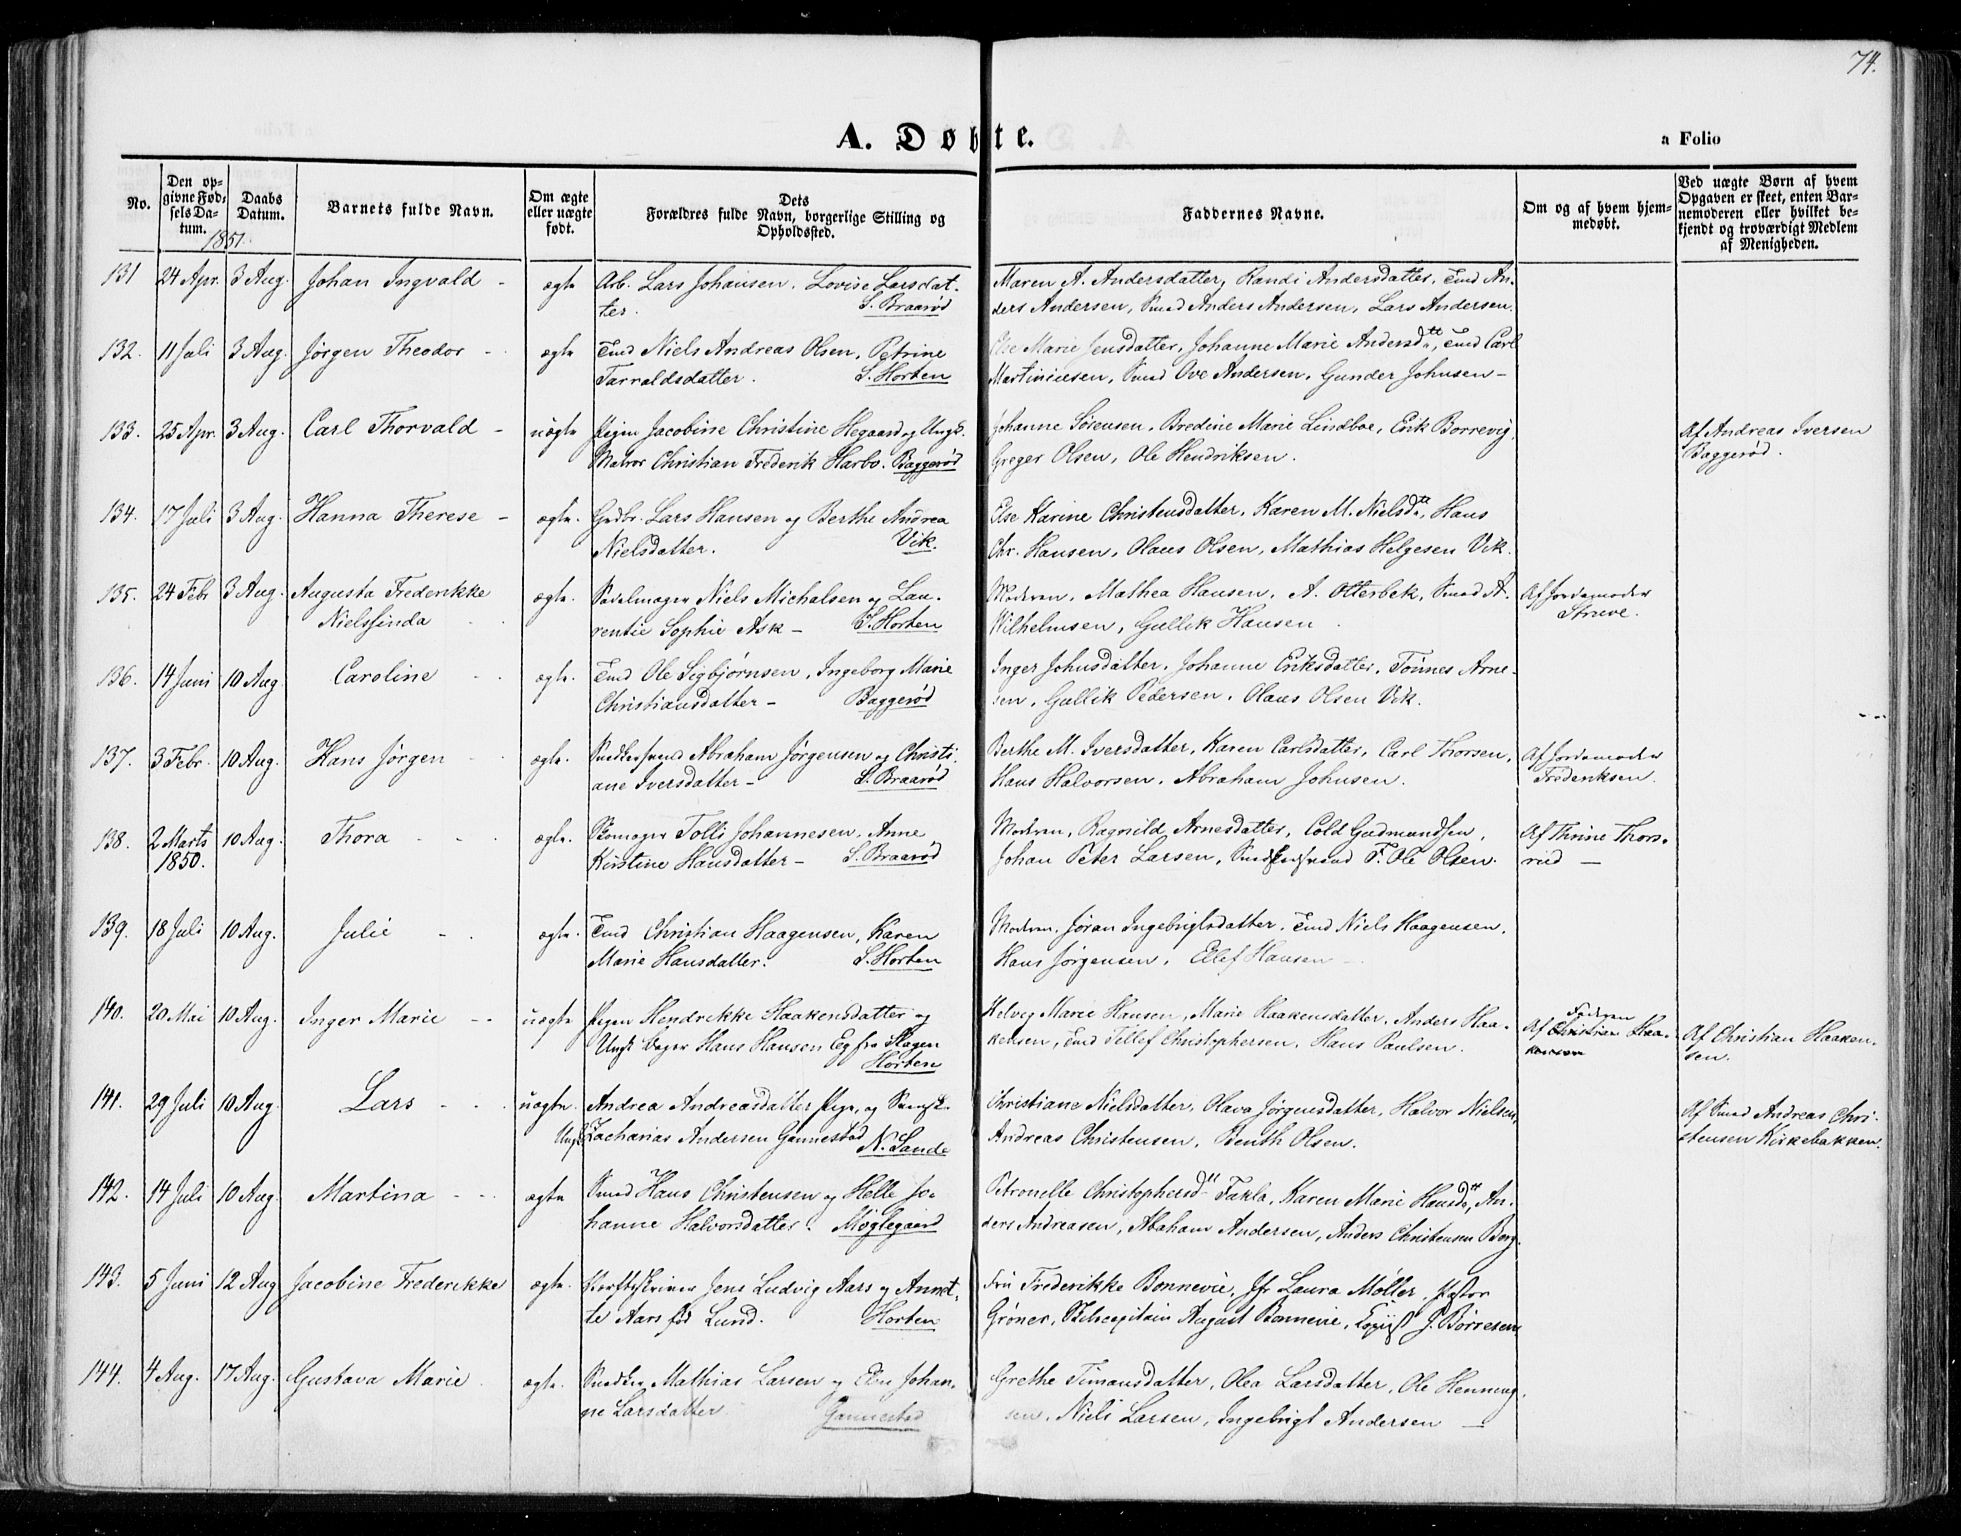 74.
A. Døbte.
a Folio
No.
Den op-
givne Fød-
sels Da-
tum.
Daabs
Datum.
Barnets fulde Navn.
Om ægte
eller uægte
født.
Dets
Forældres fulde Navn, borgerlige Stilling og
Opholdssted.
Faddernes Navne.
Om og af hvem hjem-
medøbt.
Ved uægte Børn af hvem
Opgaven er skeet, enten Bar-
nemoderen eller hvilket be-
kjendt og troværdigt Medlem
af Menigheden.
1851.
131 24 Apr. 3 Aug. Johan Ingvald - ægte Arb. Lars Johansen. Lovise Larsdat- Maren A. Andersdatter, Randi Andersdatter, Tmd An-
ter. S. Braarød ders Andersen, Smed Anders Andersen, Lars Andersen.
132. 11 Juli 3 Aug. Jørgen Theodor - ægte Tmd Niels Andreas Olsen, Petrine Else Marie Jensdatter, Johanne Marie Andersdtt, Tmd Carl
Tarraldsdatter. S. Horten Martiniusen, Smed Ove Andersen, Gunder Johnsen -
133. 25 Apr. 3 Aug. Carl Thorvald - uægte Pigen Jacobine Christine Hegaard og Ungk. Johanne Sørensen, Bredine Marie Lindboe, Erik Borrevig, Af Andreas Iversen
Matros Christian Frederik Harbo. Baggerød Greger Olsen, Ole Hendriksen. Baggerød.
134. 17 Juli 3 Aug. Hanna Therese - ægte. Grdbr. Lars Hansen og Berthe Andrea Else Karine Christensdatter, Karen M. Nielsdtt, Hans
Nielsdatter. Vik. Chr. Hansen, Olaus Olsen, Mathias Helgesen Vik.
135. 24 Febr 3 Aug. Augusta Frederikke ægte. Sadelmager Niels Michalsen og Lau- Moderen, Mathea Hansen, A. Otterbek, Smed A. Af Jordemoder
Nielsfinda rentie Sophie Ask - S. Horten Wilhelmsen, Gullik Hansen. Strüve.
136. 14 Juni 10 Aug. Caroline ægte. Tmd Ole Sigbjørnsen, Ingeborg Marie Inger Johnsdatter, Johanne Eriksdatter, Tønnes Arne-
Christiansdatter - Baggerød sen, Gullik Pedersen, Olaus Olsen Vik.
137. 3 Febr. 10 Aug. Hans Jørgen ægte. Snedkersvend Abraham Jørgensen og Christi- Berthe M. Iversdatter, Karen Carlsdatter, Carl Thorsen, Af Jordemoder
ane Iversdatter - S. Braarød Hans Halvorsen, Abraham Johnsen. Frederiksen.
138. 2 Marts 10 Aug. Thora - ægte. Skomager Tolli Johannesen, Anne Moderen, Ragnild Arnesdatter, Cold Gudmundsen, Af Thrine Thors-
1850. Kirstine Hansdatter - S. Braarød Johan Peter Larsen, F. Ole Olsen. rud -
139. 18 Juli 10 Aug. Julie - ægte. Tmd Christian Haagensen, Karen Moderen, Jøran Ingebrigtsdatter, Tmd Niels Haagensen,
Marie Hansdatter. S. Horten Hans Jørgensen, Ellef Hansen -
140. 20 Mai 10 Aug. Inger Marie - uægte Pigen Hendrikke Haakensdatter og Helvig Marie Hansen, Marie Haakensdatter, Anders Haa- Faderen Af Christian Haa- Af Christian Haaken-
Ungk Bager Hans Hansen Eg fra Skagen kensen, Tmd Tellef Christophersen, Hans Paulsen. kensen sen.
Horten
141. 29 Juli 10 Aug. Lars - uægte. Andrea Andreasdatter Pige, og Christiane Nielsdatter, Olava Jørgensdatter, Halvor Nielsen, Af Smed Andreas Chri-
Ungk Zacharias Andersen Gannestad N. Sande Andreas Christensen, Benth Olsen. stensen Kirkebakken.
142. 14 Juli 10 Aug. Martina - ægte Smed Hans Christensen og Helle Jo- Petronelle Christophersdtt Takla, Karen Marie Hansdtt, An-
hanne Halvorsdatter. Møglegaard ders Andreasen, Abaham Andersen, Anders Christensen Borg.
143. 5 Juni 12 Aug Jacobine Frederikke ægte. Værftsskriver Jens Ludvig Aars og Annet- Fru Frederikke Bonnevie, Jfr Laura Møller, Pastor
te Aars fød Lund. Horten Grøner, Skibscapitain August Bonnevie, Kopist J. Børresen
144. 4 Aug. 17 Aug. Gustava Marie ægte. Snedker Mathias Larsen og Elen Johan- Grethe Timansdatter, Olea Larsdatter, Ole Henning-
ne Larsdatter Gannestad sen, Niels Larsen, Ingebrigt Andersen -